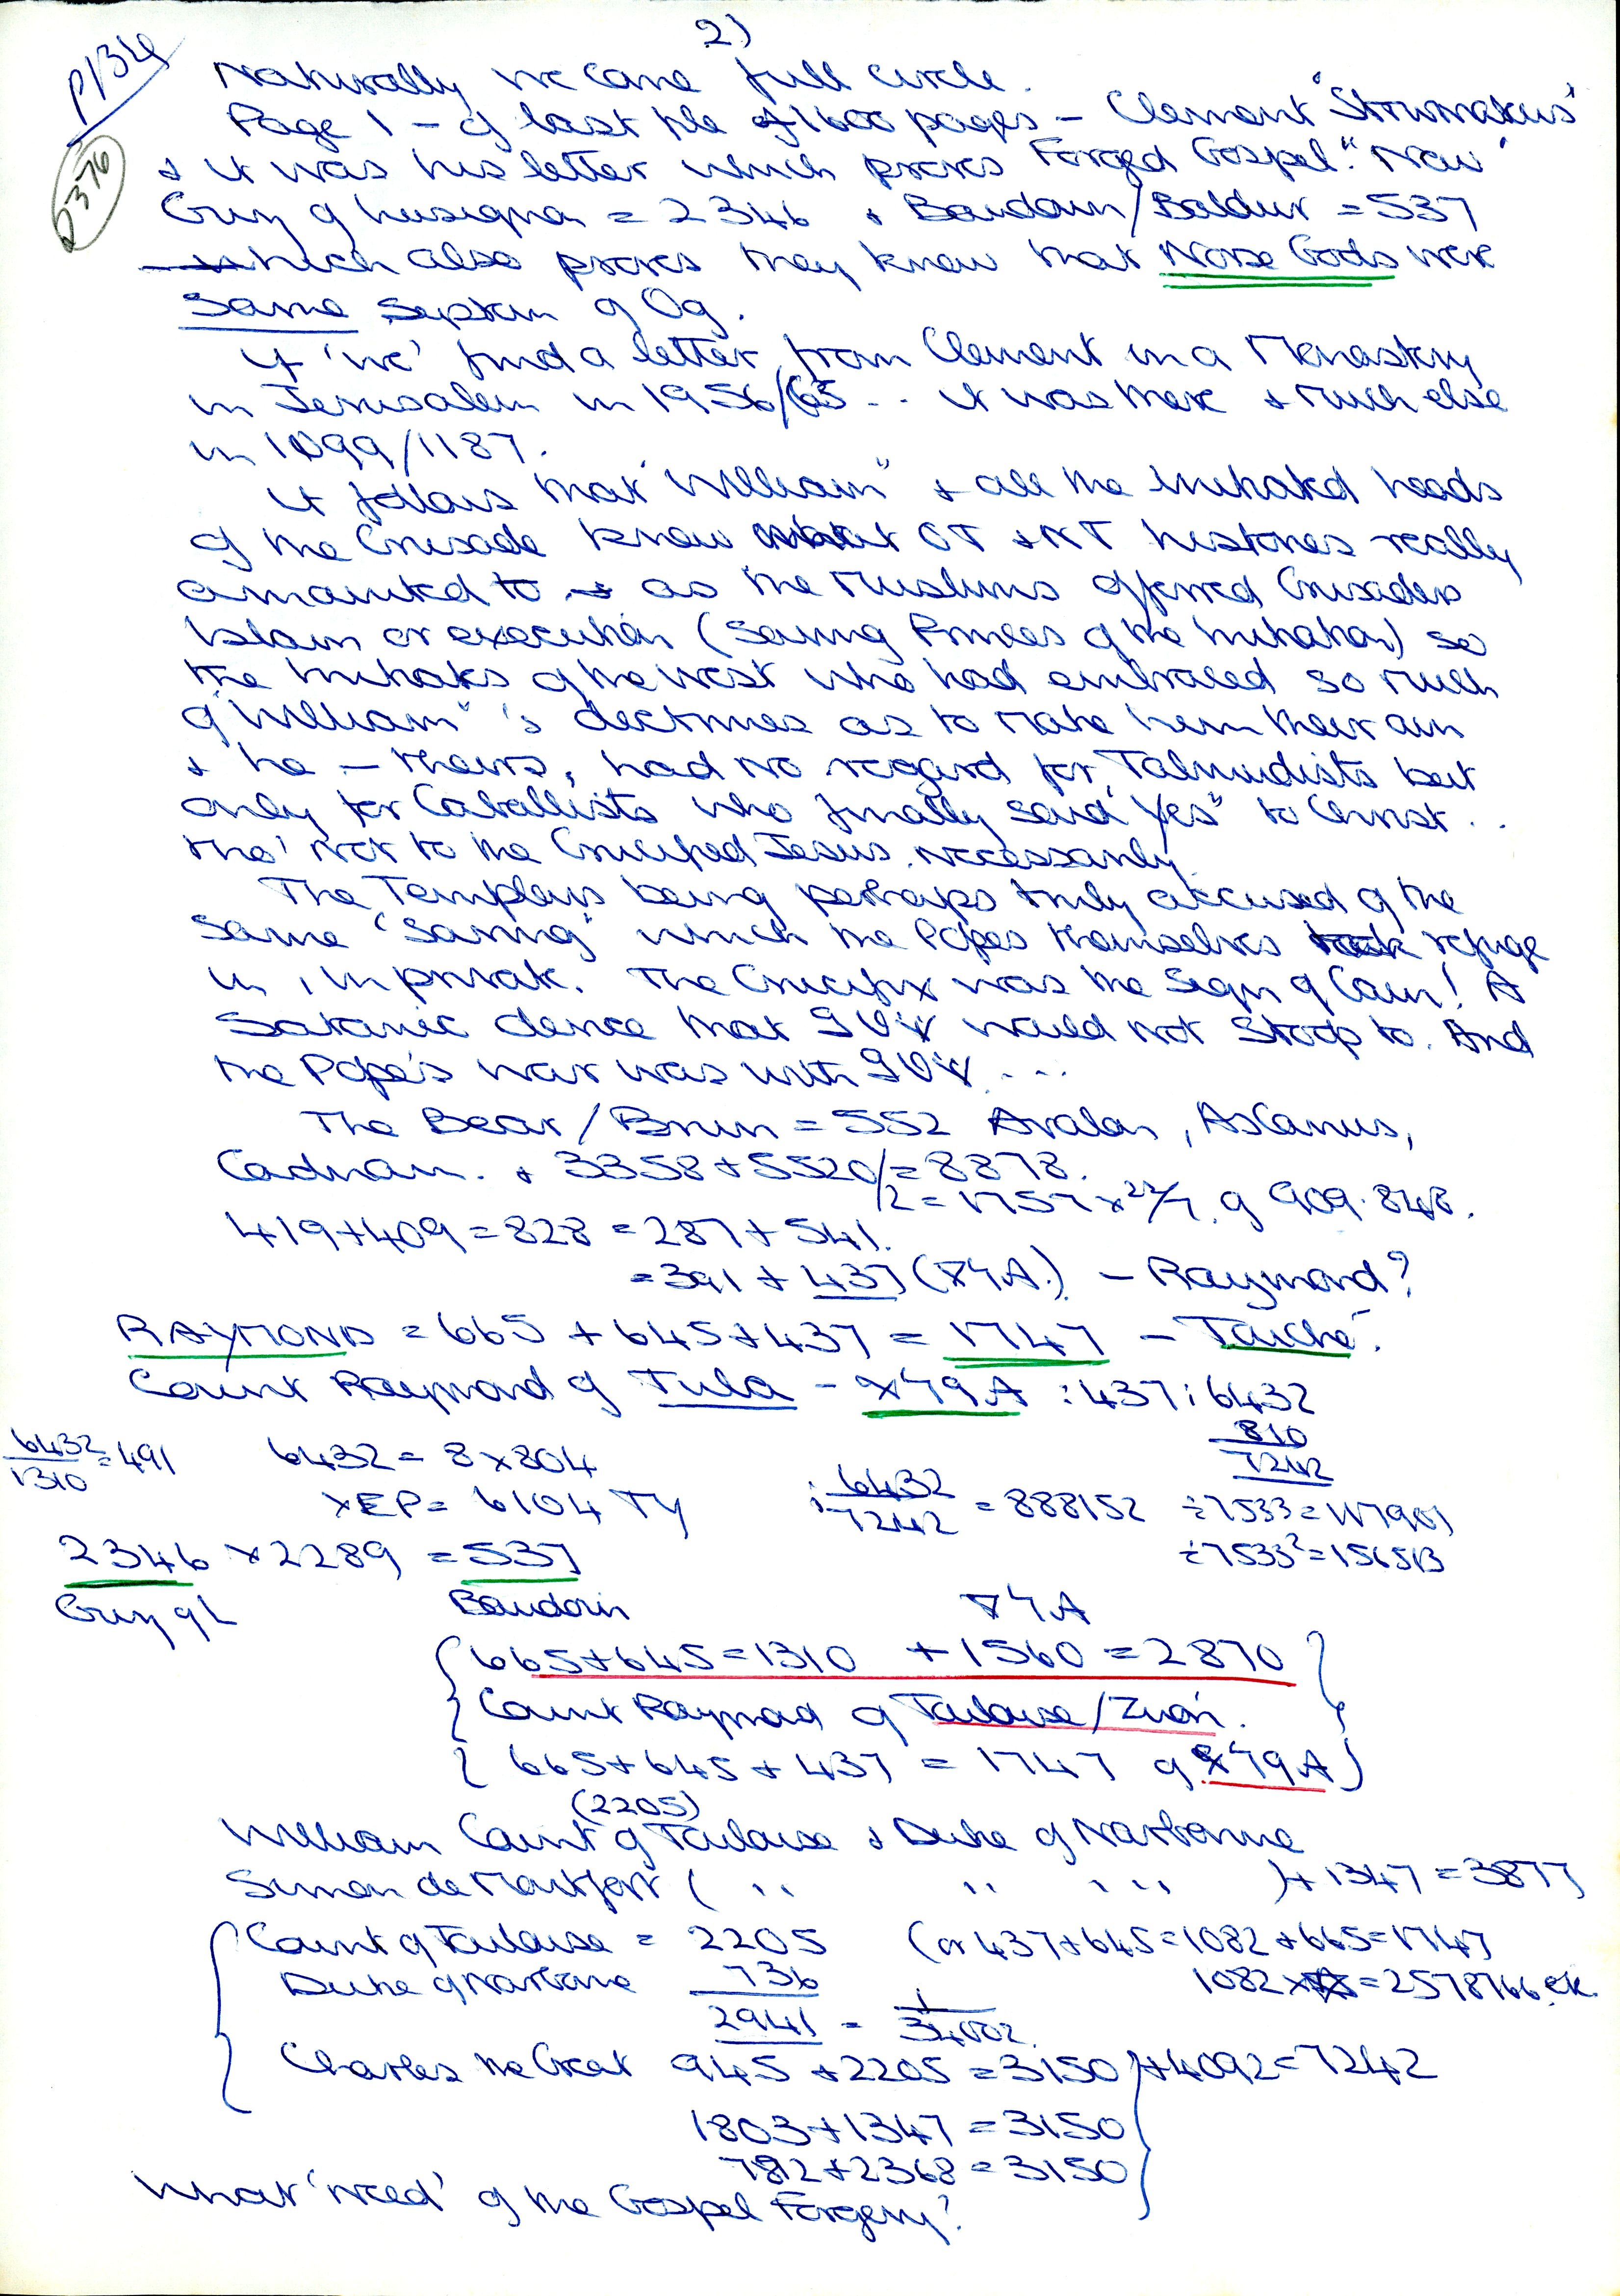 2)
P134
2376
Naturally we came full circle.
Page 1 - of last file of 1600 pages - Clement "Stromateus"
& it was his letter which proves Forged Gospel." Now
Guy of Lusignan = 2346 & Baudouin/Baldur = 537
which also proves they knew that Norse Gods were
same system of Og.
If 'we' find a letter from Clement in a Monastery
in Jerusalem in 1956/65 .. it was there & much else
in 1099/1187.
It follows that "William" & all the Initiated heads
of the Crusade knew what OT & NT histories really
amounted to & as the Muslims offered Crusaders
Islam or execution (saving Princes of the Initiation) so
the Initiates of the West who had embraced so much
of "William"'s doctrines as to make him their own
& he - theirs, had no regard for Talmudists but
only for Caballists who finally said "Yes" to Christ ..
tho' not to the Crucified Jesus necessarily.
The Templars being perhaps truly accused of the
same "saving" which the Popes themselves took refuge
in, in private. The Crucifix was the Sign of Cain! A
Satanic device that would not stoop to. And
the Pope's war was with ...
The Bear/Bruin = 552 Avalon, Ascanius,
Cadman. & 3358 + 5520 = 8878.
/2 = 1757 x 22/7. of 909.848.
419+409 = 828 = 287 + 541.
= 391 + 437 - Raymond?
RAYMOND = 665 + 645 + 437 = 1747 - Taiché.
Count Raymond of Tula - : 437 : 6432
810
7242
6432/1310 = 491
6432 = 8 x 804
x EP = 6104 TY
: 6432/7242 = 888152 ÷ 7533 = 117901
÷ 7533² = 156513
2346 x 2289 = 537
Guy of L
Baudouin
{ 665+645 = 1310 + 1560 = 2870 }
Count Raymond of Toulouse/
{ 665 + 645 + 437 = 1747 of
(2205)
William Count of Toulouse & Duke of Narbonne
Simon de Montfort ( " " " " ) + 1347 = 3877
Count of Toulouse = 2205 (or 437+645 = 1082 + 665 = 1747
Duke of Narbonne 736
1082 x = 2578766. etc.
2941 = 1/34002
Charles the Great 945 + 2205 = 3150 } + 4092 = 7242
1803 + 1347 = 3150
782 + 2368 = 3150
What 'need' of the Gospel Forgery?